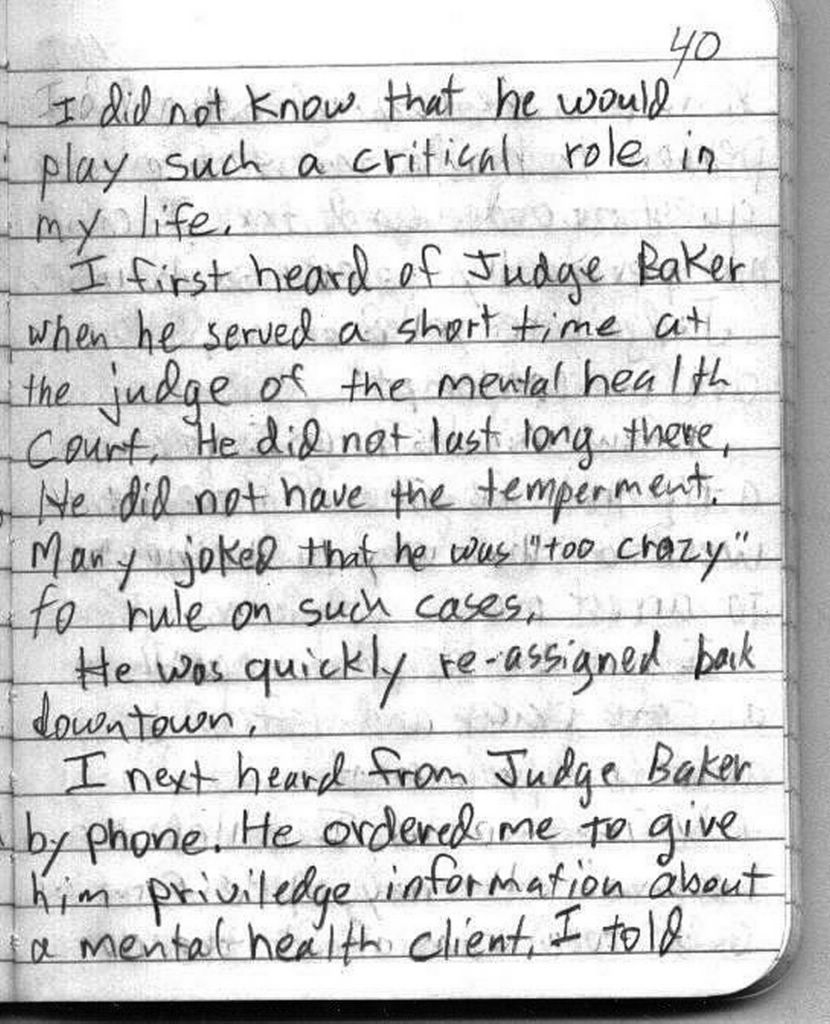 40
I did not know that he would
play such a critical role in
my life.
I first heard of Judge Baker
when he served a short time at
the judge of the mental health
Court. He did not last long there,
He did not have the temperment.
Many joked that he was "too crazy"
to rule on such cases.
He was quickly re-assigned back
downtown.
I next heard from Judge Baker
by phone. He ordered me to give
him priviledge information about
a mental health client. I told